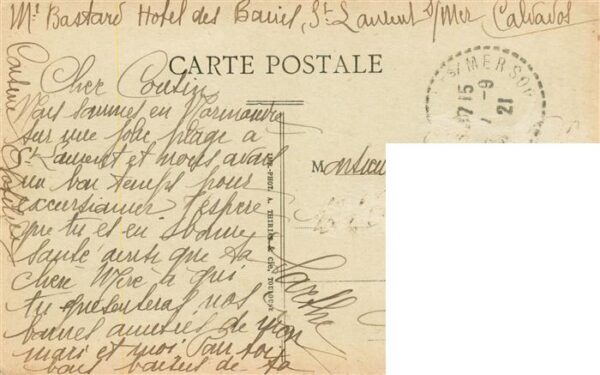 Mr Bastard Hotel des Bains, St Laurent s/Mer Calvados
CARTE POSTALE
S/MERSON
17 15
7 -9
21
Cher Cousin
Nous sommes en Normandie
sur une jolie plage a
St Laurent et nous avons
un bon temps pour
excursionner J'espere
que tu es en bonne
santé ainsi que ta
chère Mère à qui
tu présenteras nos
bonnes amitiés de mon
mari et moi
bons baisers de ta
Cousine
Monsieur
Sarthe
PHOT. A. THIRIAT & CIE, TOULOUSE